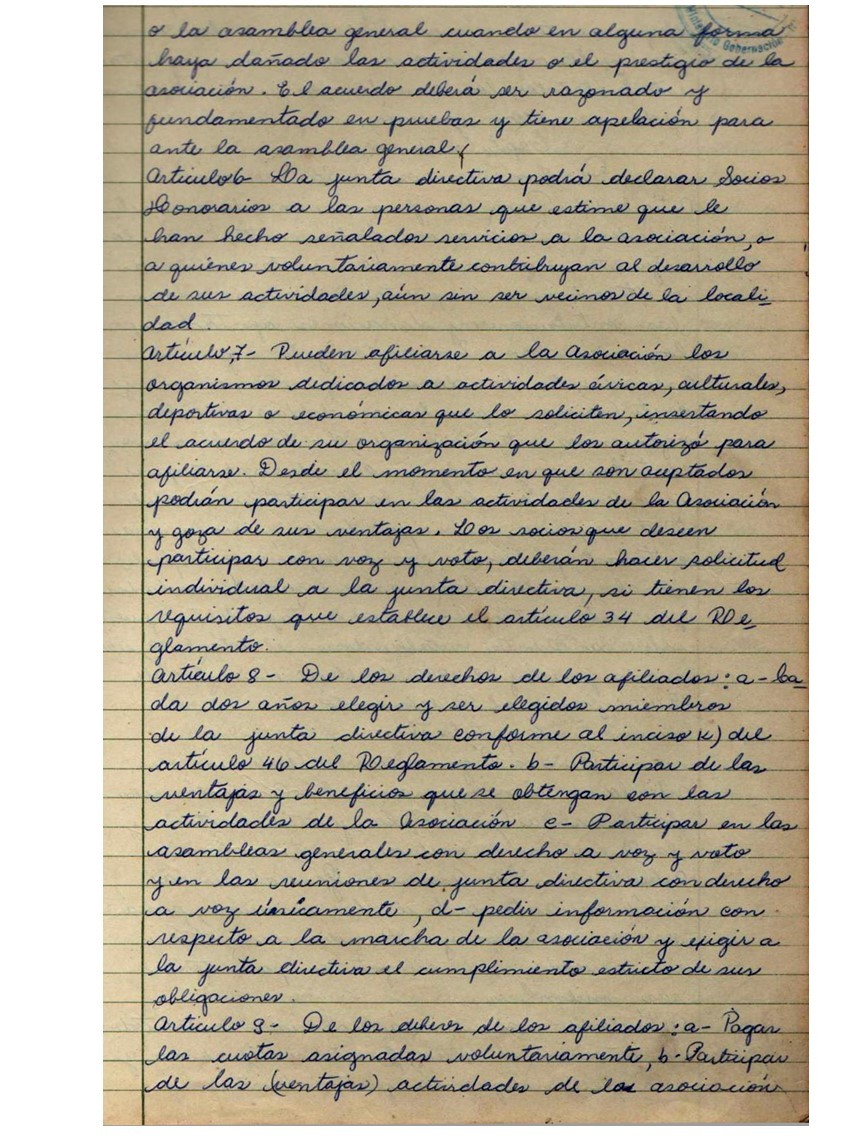 o la asamblea general cuando en alguna forma
haya dañado las actividades o el prestigio de la
asociación. El acuerdo deberá ser razonado y
fundamentado en pruebas y tiene apelación para
ante la asamblea general.
Artículo 6- La junta directiva podrá declarar Socios
Honorarios a las personas que estime que le
han hecho señalados servicios a la asociación, o
a quiénes voluntariamente contribuyan al desarrollo
de sus actividades, aún sin ser vecinos de la locali-
dad.
Artículo, 7- Pueden afiliarse a la Asociación los
organismos dedicados a actividades cívicas, culturales,
deportivas o económicas que lo soliciten, insertando
el acuerdo de su organización que los autorizó para
afiliarse. Desde el momento en que son aceptados
podrán participar en las actividades de la Asociación
y goza de sus ventajas. Los socios que deseen
participar con voz y voto, deberán hacer solicitud
individual a la junta directiva, si tienen los
requisitos que establece el artículo 34 del Re-
glamento.
Artículo 8- De los derechos de los afiliados: a- Ca-
da dos años elegir y ser elegidos miembros
de la junta directiva conforme al inciso K) del
artículo 46 del Reglamento. b- Participar de las
ventajas y beneficios que se obtengan con las
actividades de la Asociación c- Participar en las
asambleas generales con derecho a voz y voto
y en las reuniones de junta directiva con derecho
a voz únicamente, d- pedir información con
respecto a la marcha de la asociación y exigir a
la junta directiva el cumplimiento estricto de sus
obligaciones.
Artículo 9- De los deberes de los afiliados: a- Pagar
las cuotas asignadas voluntariamente, b- Participar
de las (ventajas) actividades de la asociación
Gobernación